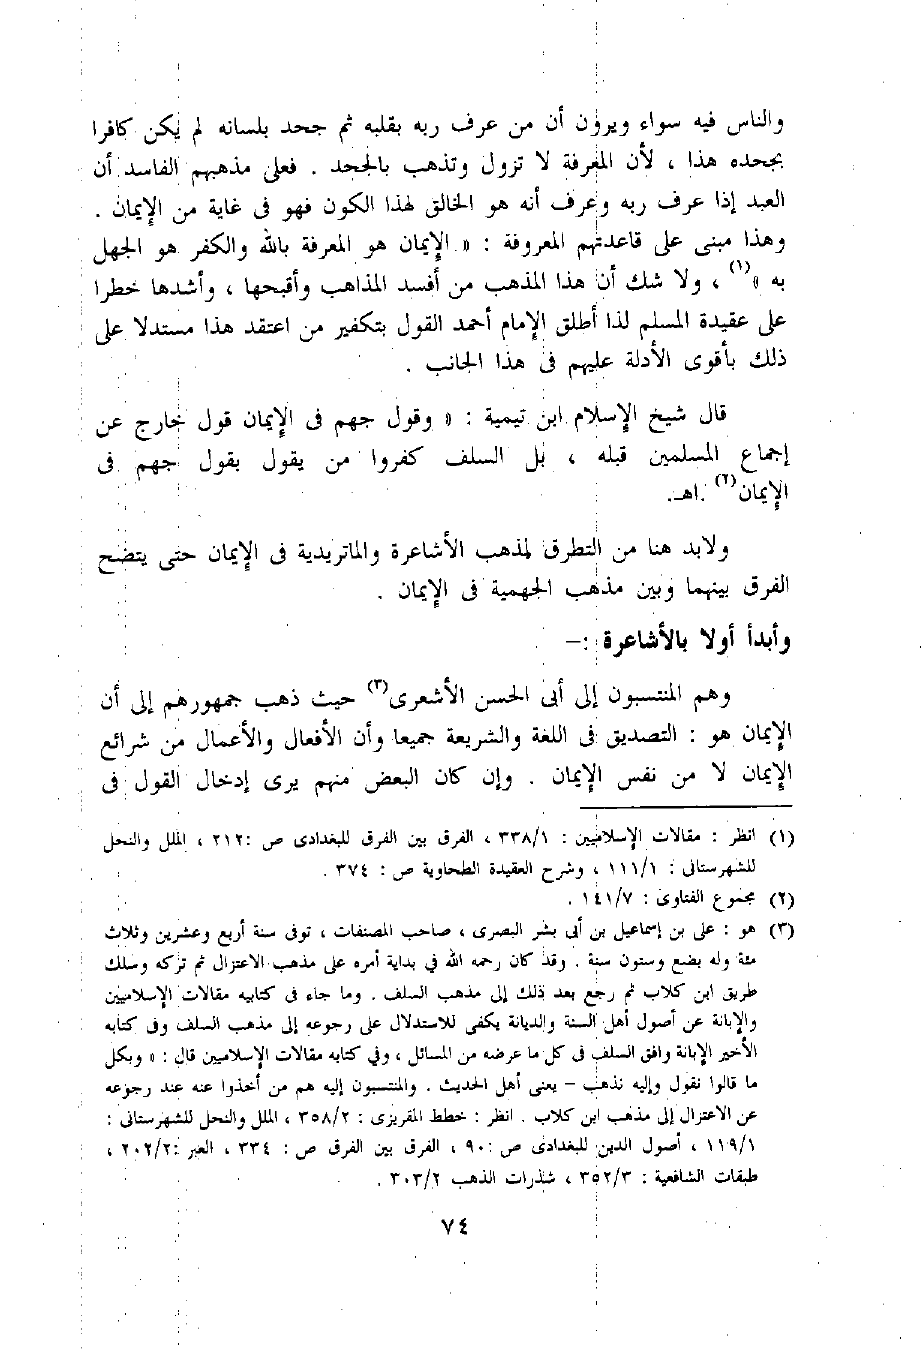 والناس فيه سواء ويرون أن من عرف ربه بقلبه ثم جحد بلسانه لم يكن كافرا
بجحده هذا ، لأن المعرفة لا تزول وتذهب بالجحد . فعلى مذهبهم الفاسد أن
العبد إذا عرف ربه وعرف أنه هو الخالق لهذا الكون فهو فى غاية من الإيمان .
وهذا مبنى على قاعدتهم المعروفة : « الإيمان هو المعرفة بالله والكفر هو الجهل
به »(١) ، ولا شك أن هذا المذهب من أفسد المذاهب وأقبحها ، وأشدها خطرا
على عقيدة المسلم لذا أطلق الإمام أحمد القول بتكفير من اعتقد هذا مستدلا على
ذلك بأقوى الأدلة عليهم فى هذا الجانب .
قال شيخ الإسلام ابن تيمية : « وقول جهم فى الإيمان قول خارج عن
إجماع المسلمين قبله ، بل السلف كفروا من يقول بقول جهم فى
الإيمان(٢) .اهـ.
ولابد هنا من التطرق لمذهب الأشاعرة والماتريدية فى الإيمان حتى يتضح
الفرق بينهما وبين مذهب الجهمية فى الإيمان .
وأبدأ أولا بالأشاعرة :–
وهم المنتسبون إلى أبى الحسن الأشعرى(٣) حيث ذهب جمهورهم إلى أن
الإيمان هو : التصديق فى اللغة والشريعة جميعا وأن الأفعال والأعمال من شرائع
الإيمان لا من نفس الإيمان . وإن كان البعض منهم يرى إدخال القول فى
(١) انظر : مقالات الإسلاميين : ٣٣٨/١ ، الفرق بين الفرق للبغدادى ص :٢١٢ ، الملل والنحل
للشهرستانى : ١١١/١ ، وشرح العقيدة الطحاوية ص : ٣٧٤ .
(٢) مجموع الفتاوى : ١٤١/٧ .
(٣) هو : على بن إسماعيل بن أبى بشر البصرى ، صاحب المصنفات ، توفى سنة أربع وعشرين وثلاث
مئة وله بضع وستون سنة . وقد كان رحمه الله في بداية أمره على مذهب الاعتزال ثم تركه وسلك
طريق ابن كلاب ثم رجع بعد ذلك إلى مذهب السلف . وما جاء فى كتابيه مقالات الإسلاميين
والإبانة عن أصول أهل السنة والديانة يكفى للاستدلال على رجوعه إلى مذهب السلف وفى كتابه
الأخير الإبانة وافق السلف فى كل ما عرضه من المسائل ، وفي كتابه مقالات الإسلاميين قال : « وبكل
ما قالوا نقول وإليه نذهب – يعنى أهل الحديث . والمنتسبون إليه هم من أخذوا عنه عند رجوعه
عن الاعتزال إلى مذهب ابن كلاب . انظر : خطط المقريزى : ٣٥٨/٢ ، الملل والنحل للشهرستانى :
١١٩/١ ، أصول الدين للبغدادى ص :٩٠ ، الفرق بين الفرق ص : ٣٣٤ ، العبر :٢٠٢/٢ ،
طبقات الشافعية : ٣٥٢/٣ ، شذرات الذهب ٣٠٣/٢ .
٧٤